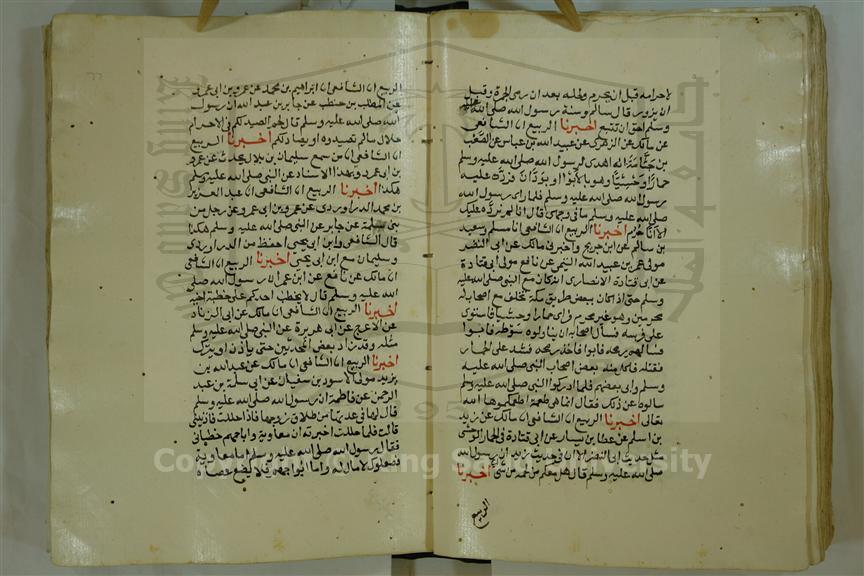 لاحرامه قبل ان يحرم ولحله بعد ان رمى الجمرة وقبل
ان يزور قال سالم وسنة رسول الله صلى الله عليه
وسلم احق ان تتبع اخبرنا الربيع ا٧ الشافعى
عن مالك عن الزهرى عن عبيد الله عن ابن عباس عن الصعب
بن جثامة انه اهدى لرسول الله صلى الله عليه وسلم
حمارًا وحشيًا وهو بالابوا او بودان فرده عليه
رسول الله صلى الله عليه وسلم فلما راى رسول الله
صلى الله عليه وسلم ما فى وجهى قال انا لم نرده عليك
الا انا حرم اخبرنا الربيع ا٧ الشافعى انا مسلم وسعيد
بن سالم عن ابن جريج واخبرنى مالك عن ابى النضر
مولى عمر بن عبيد الله التيمى عن نافع مولى ابى قتادة
عن ابى قتادة الانصارى انه كان مع النبى صلى الله عليه
وسلم حتى اذا كان ببعض طريق مكة تخلف مع اصحاب له
محرمين وهو غير محرم فراى حمارا وحشيا فاستوى
على فرسه فسأل اصحابه ان يناولوه سوطه فابوا
فسالهم رمحه فابوا فاخذ رمحه فشد على الحمار
فقتله فاكل منه بعض اصحاب النبى صلى الله عليه
وسلم وابى بعضهم فلما ادركوا النبى صلى الله عليه وسلم
سالوه عن ذلك فقال انما هى طعمة اطعمكموها الله
تعالى اخبرنا الربيع ا٧ الشافعى ا٧ مالك عن زيد
بن اسلم عن عطا بن يسار عن ابى قتادة فى الحمار الوحشى
مثل حديث ابى النضر الا ان فى حديث زيد ان رسول الله
صلى الله عليه وسلم قال هل معكم من لحمه من شئ اخبرنا
الربيع
الربيع ا٧ الشافعى ا٧ ابراهيم بن محمد عن عمرو بن ابى عمرو
عن المطلب بن حنطب عن جابر بن عبد الله ان رسول
الله صلى الله عليه وسلم قال لحم الصيد لكم فى الاحرام
حلال ما لم تصيدوه او يصاد لكم اخبرنا الربيع
ا٧ الشافعى ا٧ من سمع سليمان بن بلال يحدث عن عمرو
بن ابى عمرو بهذا الاسناد عن النبى صلى الله عليه وسلم
هكذا اخبرنا الربيع ا٧ الشافعى ا٧ عبد العزيز
بن محمد الدراوردى عن عمرو بن ابى عمرو عن رجل من
بنى سلمة عن جابر عن النبى صلى الله عليه وسلم هكذا
قال الشافعى وابن ابى يحيى احفظ من الدراوردى
وسليمان مع ابن ابى يحيى اخبرنا الربيع ا٧ الشافعى
ا٧ مالك عن نافع عن ابن عمر ان رسول الله صلى
الله عليه وسلم قال لا يخطب احدكم على خطبة اخيه
اخبرنا الربيع ا٧ الشافعى ا٧ مالك عن ابى الزناد
عن الاعرج عن ابى هريرة عن النبى صلى الله عليه وسلم
مثله وقد زاد بعض المحدثين حتى ياذن او يترك
اخبرنا الربيع ا٧ الشافعى ا٧ مالك عن عبد الله بن
يزيد مولى الاسود بن سفيان عن ابى سلمة بن عبد
الرحمن عن فاطمة ان رسول الله صلى الله عليه وسلم
قال لها فى عدتها من طلاق زوجها فاذا حللت فاذنينى
قالت فلما حللت اخبرته ان معاوية وابا جهم خطبانى
فقال رسول الله صلى الله عليه وسلم اما معاوية
فصعلوك لا مال له واما ابو جهم فلا يضع عصاه